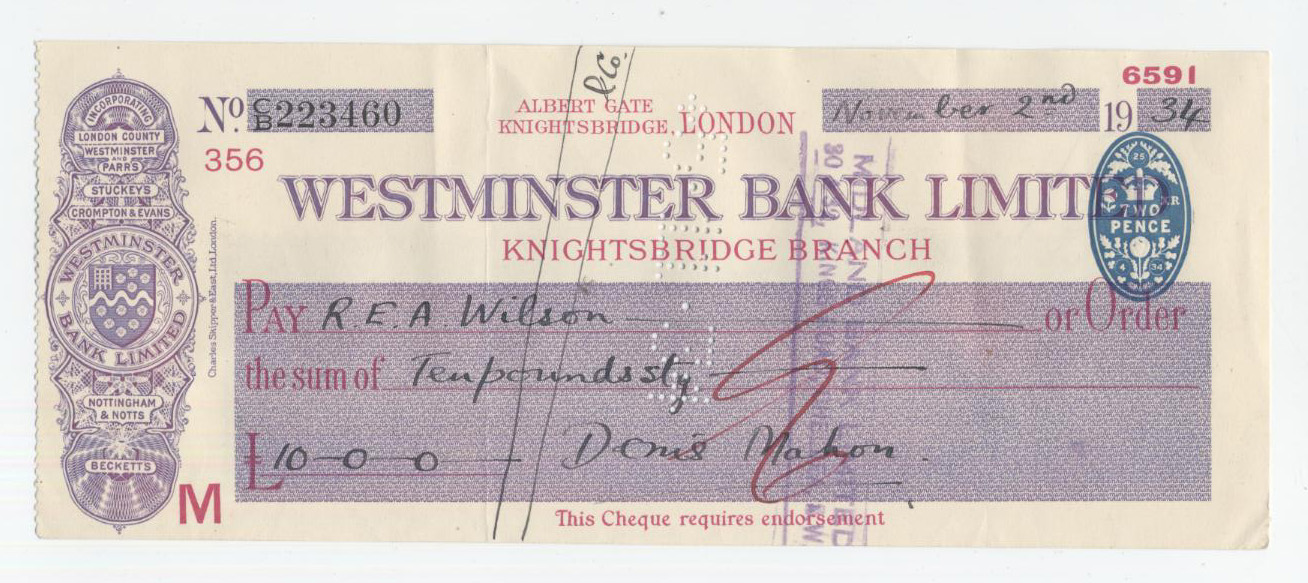 6591
INCORPORATING
LONDON COUNTY
WESTMINSTER
AND
PARR'S
STUCKEY'S
CROMPTON & EVANS
WESTMINSTER
BANK LIMITED
NOTTINGHAM
& NOTTS
BECKETTS
Charles Skipper & East, Ltd. London.
No. C/B 223460
356
ALBERT GATE
KNIGHTSBRIDGE, LONDON
& Co.
November 2nd 1934
WESTMINSTER BANK LIMITED
TWO
PENCE
KNIGHTSBRIDGE BRANCH
PAY R.E.A. Wilson or Order
the sum of Ten pounds stg
£ 10-0-0 Denis Mahon.
M
This Cheque requires endorsement
MIDLAND BANK LIMITED